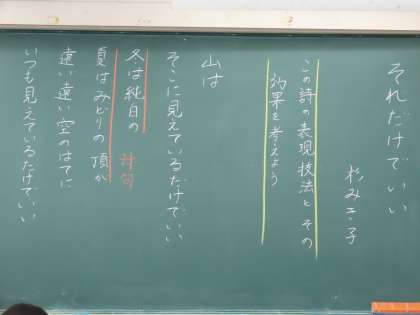 それだけでいい
杉みき子
この詩の表現技法とその
効果を考えよう
山は
そこに見えているだけでいい
冬は純白の
対句
夏はみどりの頂が
遠い遠い空のはてに
いつも見えているだけでいい